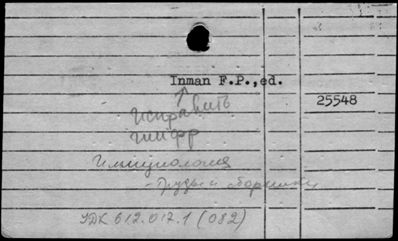 Inman F.P.,ed.
25548
исправить
шифр
Иммунология
- Труды и сборники
УДК 612.017.1 (082)